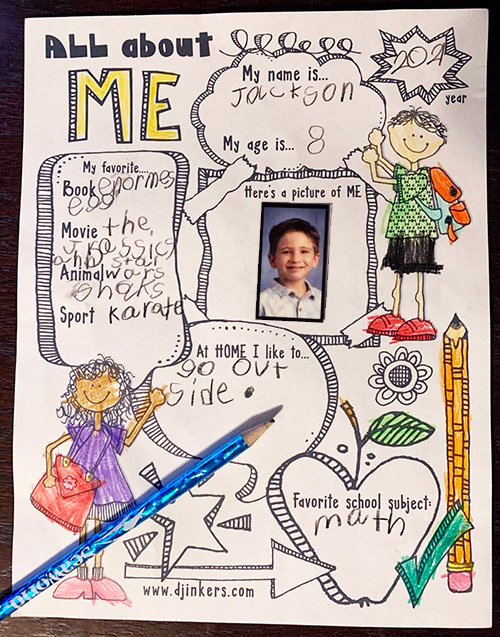 ALL about
ME
My name is...
Jackson
year
My age is... 8
My favorite....
Book enormes
egg
Here's a picture of ME
Movie the,
Jrassics
and star
Animal wars
shaks
Sport karate
At HOME I like to...
go out
side.
Favorite school subject:
math
SEAWORLD
www.djinkers.com